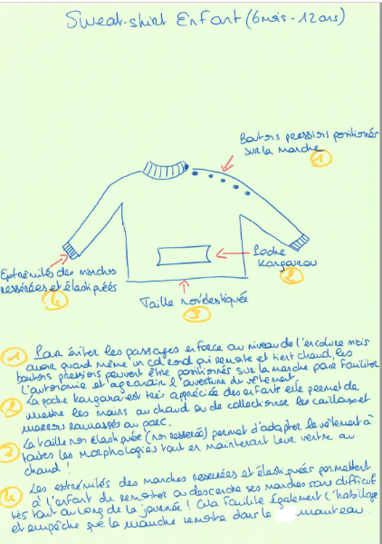 Sweat-shirt Enfant (6 mois - 12 ans)
Boutons pressions positionnés
sur la manche
1
Extrémités des manches
resserrées et élastiquées
4
Poche
Kangourou
2
Taille non élastiquée
3
1 Pour éviter les passages en force au niveau de l'encolure mais
avoir quand même un col rond qui remonte et tient chaud, les
boutons pressions peuvent être positionnés sur la manche pour faciliter
l'autonomie et agrandir l'ouverture du vêtement.
2 La poche kangourou est très appréciée des enfants elle permet de
mettre les mains au chaud ou de collectionner les cailloux et
marrons ramassés au parc.
3 La taille non élastiquée (non resserrée) permet d'adapter le vêtement à
toutes les morphologies tout en maintenant leur ventre au
chaud !
4 Les extrémités des manches resserrées et élastiquées permettent
à l'enfant de remonter ou descendre ses manches sans difficulté
tout au long de la journée ! Cela facilite également l'habillage
et empêche que la manche remonte dans le manteau.